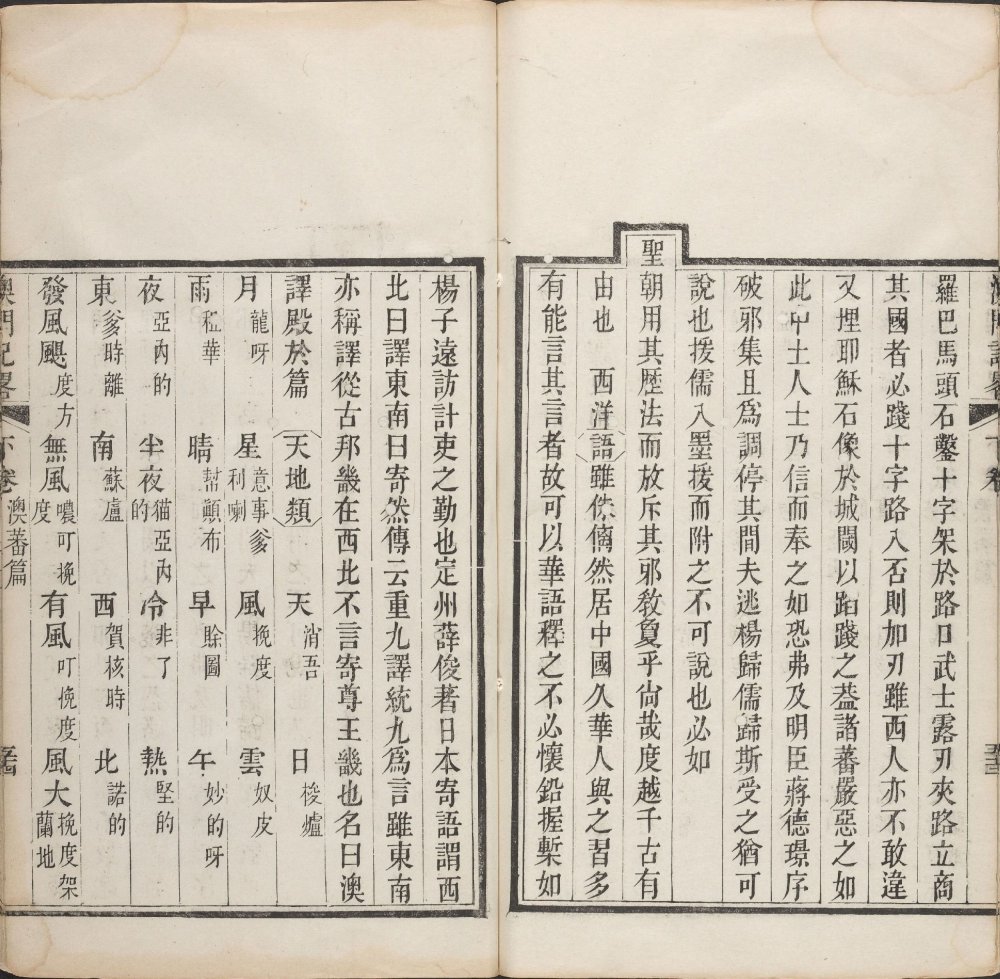 羅巴馬頭石鑿十字架於路口武士露刃夾路立商
其國者必踐十字路入否則加刃雖西人亦不敢違
又埋耶穌石像於城閾以蹈踐之葢諸蕃嚴惡之如
此中土人士乃信而奉之如恐弗及明臣蔣德璟序
破邪集且爲調停其間夫逃楊歸儒歸斯受之猶可
說也援儒入墨援而附之不可說也必如
聖朝用其歷法而放斥其邪敎敻乎尙哉度越千古有
由也　西洋語雖侏𠌯然居中國久華人與之習多
有能言其言者故可以華語釋之不必懷鉛握槧如
楊子遠訪計吏之勤也定州薛俊著日本寄語謂西
北曰譯東南曰寄然傳云重九譯統九爲言雖東南
亦稱譯從古邦畿在西北不言寄尊王畿也名曰澳
譯殿於篇　天地類　天消吾　日梭爐
月龍呀　星意事爹利喇　風挽度　雲奴皮
雨租華　晴幫顚布　早賒圖　午妙的呀
夜亞內的　半夜猫亞內的　冷非了　熱堅的
東爹時離　南蘇盧　西賀核時　北諾的
發風颶度方　無風噥可挽度　有風叮挽度　風大挽度架蘭地
澳門記畧　下卷　澳蕃篇